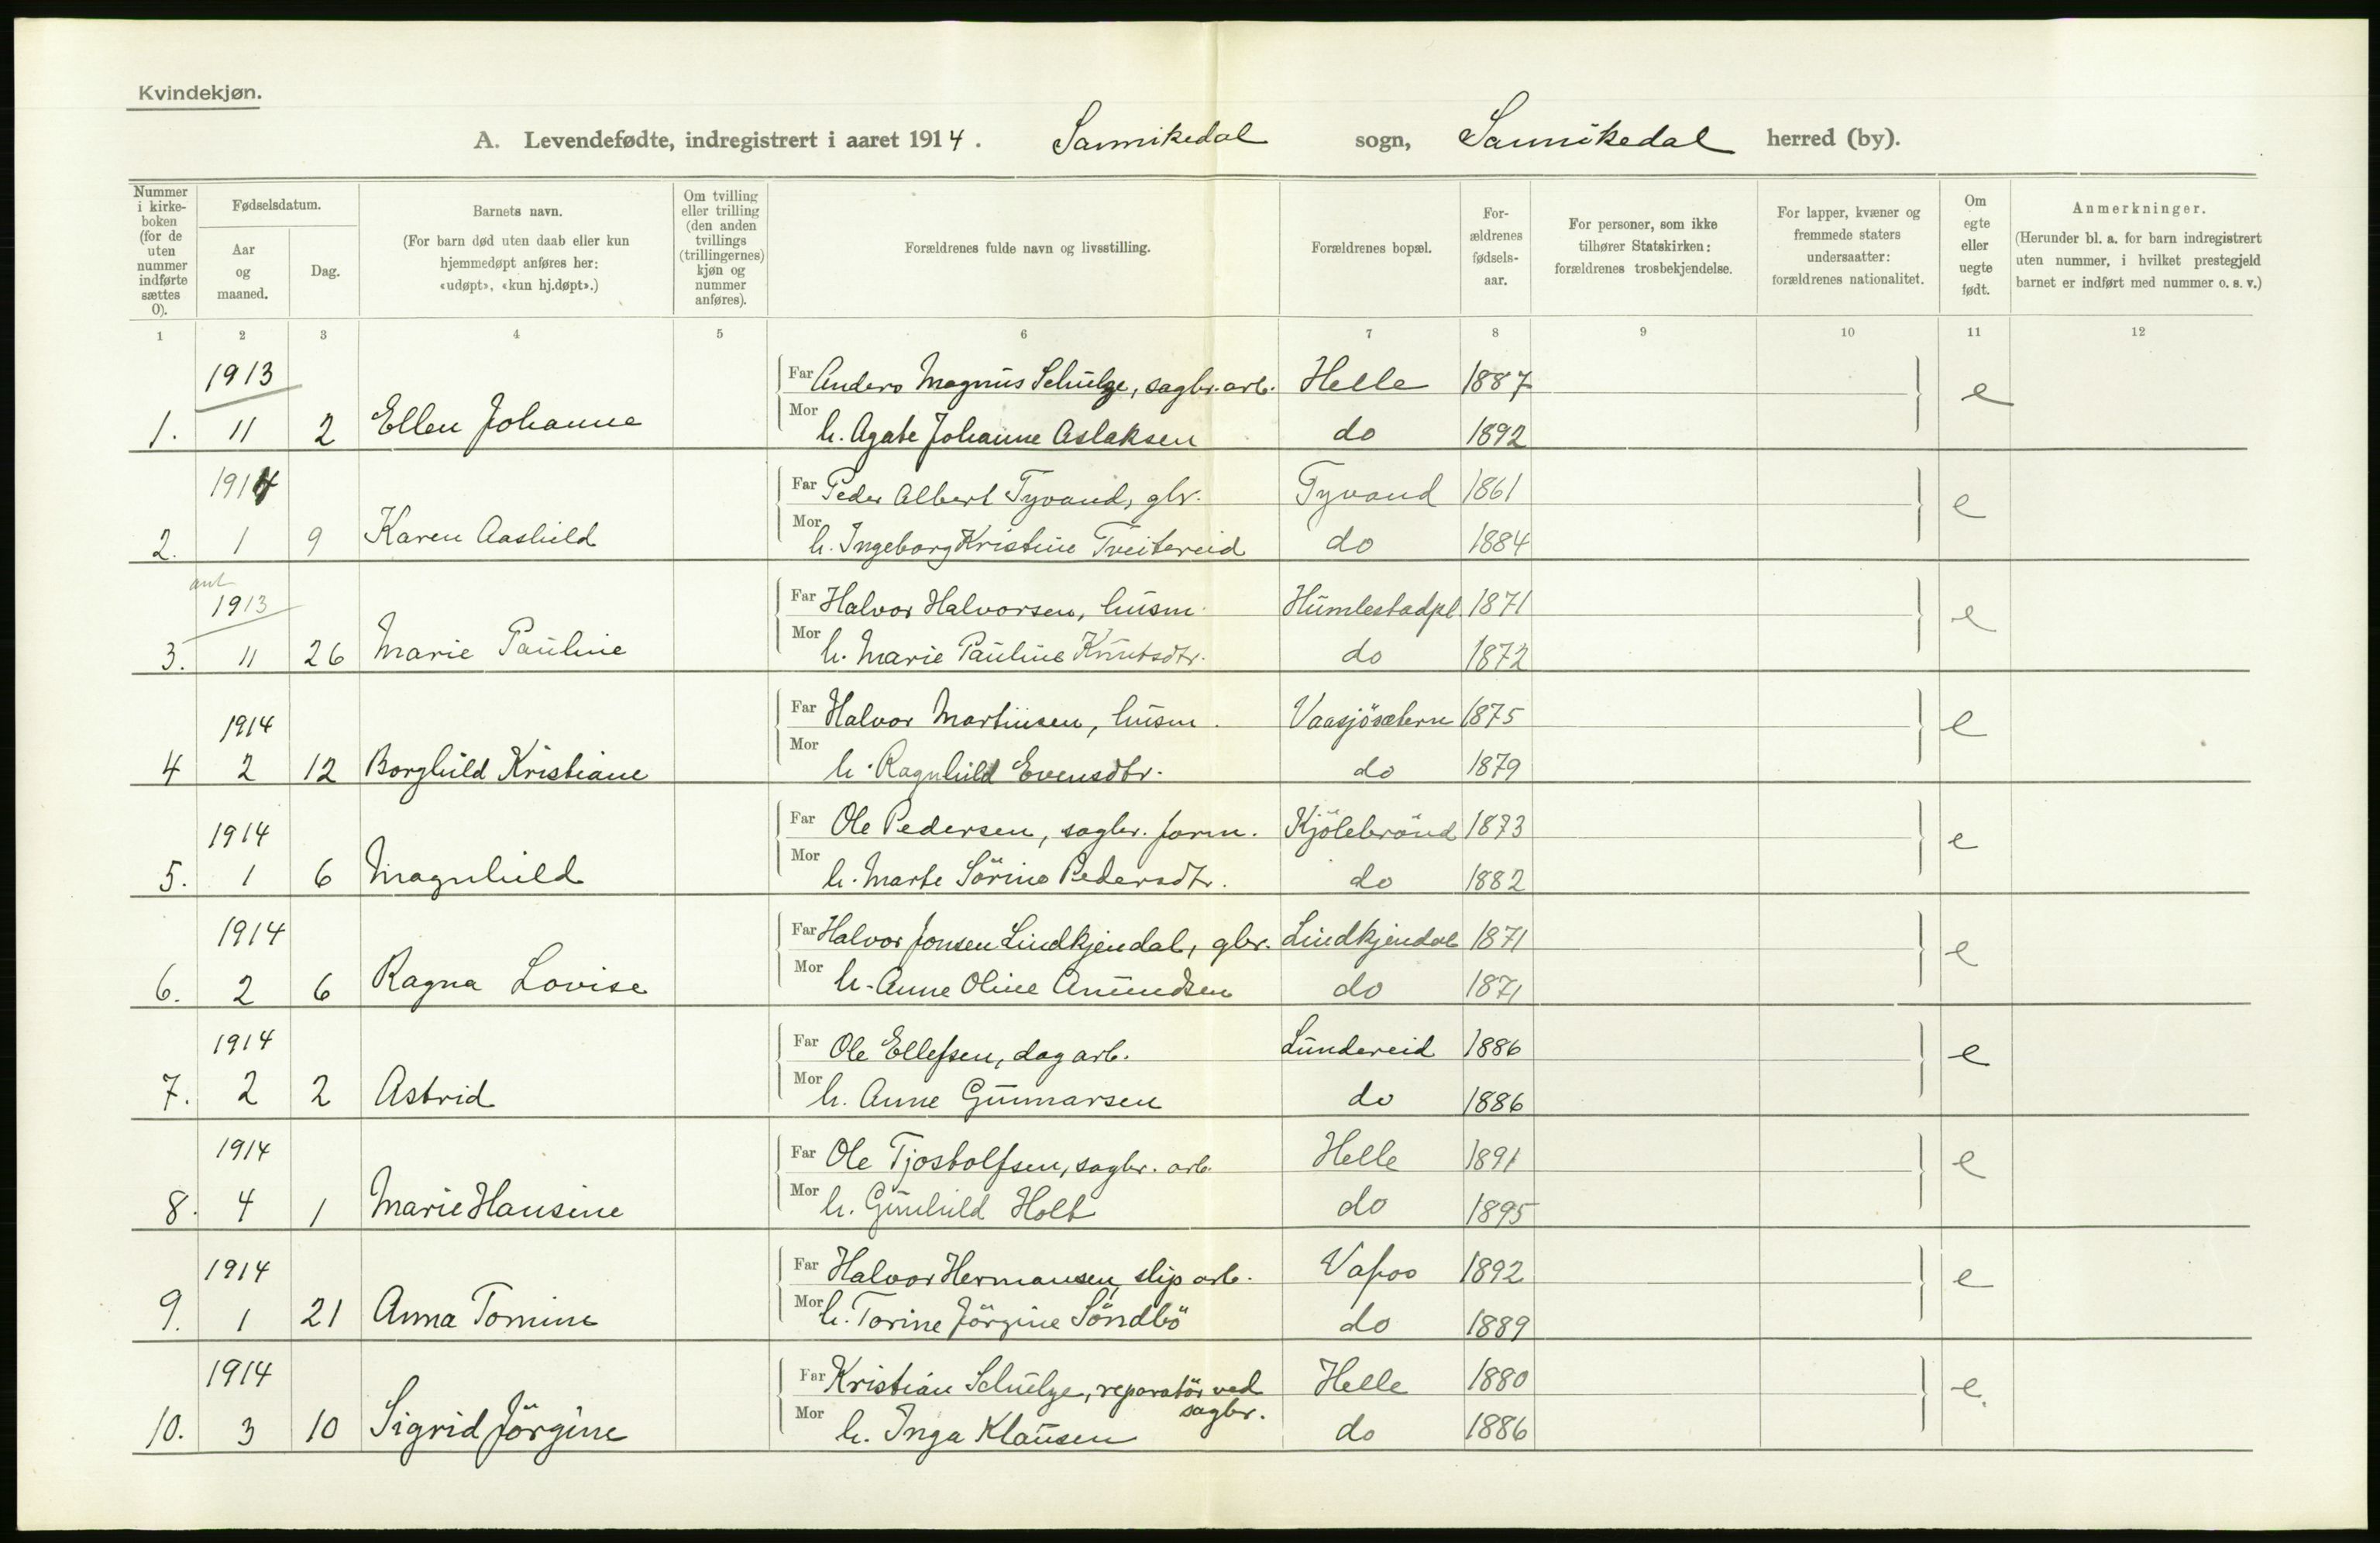 Kvindekjøn.
A. Levendefødte, indregistrert i aaret 1914. Sannikedal sogn, Sannikedal herred (by).
Nummer i kirkeboken (for de uten nummer indførte sættes 0).
Fødselsdatum.
Aar og maaned.
Dag.
Barnets navn.
(For barn død uten daab eller kun hjemmedøpt anføres her: «udøpt», «kun hj.døpt».)
Om tvilling eller trilling (den anden tvillings (trillingernes) kjøn og nummer anføres).
Forældrenes fulde navn og livsstilling.
Forældrenes bopæl.
Forældrenes fødselsaar.
For personer, som ikke tilhører Statskirken: forældrenes trosbekjendelse.
For lapper, kvæner og fremmede staters undersaatter: forældrenes nationalitet.
Om egte eller uegte født.
Anmerkninger.
(Herunder bl. a. for barn indregistrert uten nummer, i hvilket prestegjeld barnet er indført med nummer o. s. v.)
1 2 3 4 5 6 7 8 9 10 11 12
1913 Far Anders Magnus Schulze, sagbr.arb. Helle 1887 e
1. 11 2 Ellen Johanne Mor h. Agate Johanne Aslaksen do 1892
1914 Far Peder Albert Tyvand, gbr. Tyvand 1861 e
2. 1 9 Karen Aashild Mor h. Ingeborg Kristine Tveitereid do 1884
ant
1913 Far Halvor Halvorsen, husm. Humlestadpl. 1871 e
3. 11 26 Marie Pauline Mor h. Marie Pauline Knutsdtr. do 1872
1914 Far Halvor Martinsen, husm. Vaasjösætern 1875 e
4 2 12 Borghild Kristiane Mor h. Ragnhild Evensdtr. do 1879
1914 Far Ole Pedersen, sagbr. form. Kjölebrönd 1873 e
5. 1 6 Magnhild Mor h. Marte Sörine Pedersdtr. do 1882
1914 Far Halvor Jonsen Lindkjendal, gbr. Lindkjendal 1871 e
6. 2 6 Ragna Lovise Mor h. Anne Oline Amundsen do 1871
1914 Far Ole Ellefsen, dagarb. Lundereid 1886 e
7. 2 2 Astrid Mor h. Anne Gunnarsen do 1886
1914 Far Ole Tjostolfsen, sagbr. arb. Helle 1891 e
8. 4 1 Marie Hansine Mor h. Gunhild Holt do 1895
1914 Far Halvor Hermansen, slip arb. Vafoo 1892 e
9. 1 21 Anna Tomine Mor h. Torine Jörgine Söndbö do 1889
1914 Far Kristian Schulze, reparatör ved sagbr. Helle 1880 e.
10. 3 10 Sigrid Jörgine Mor h. Inga Klausen do 1886